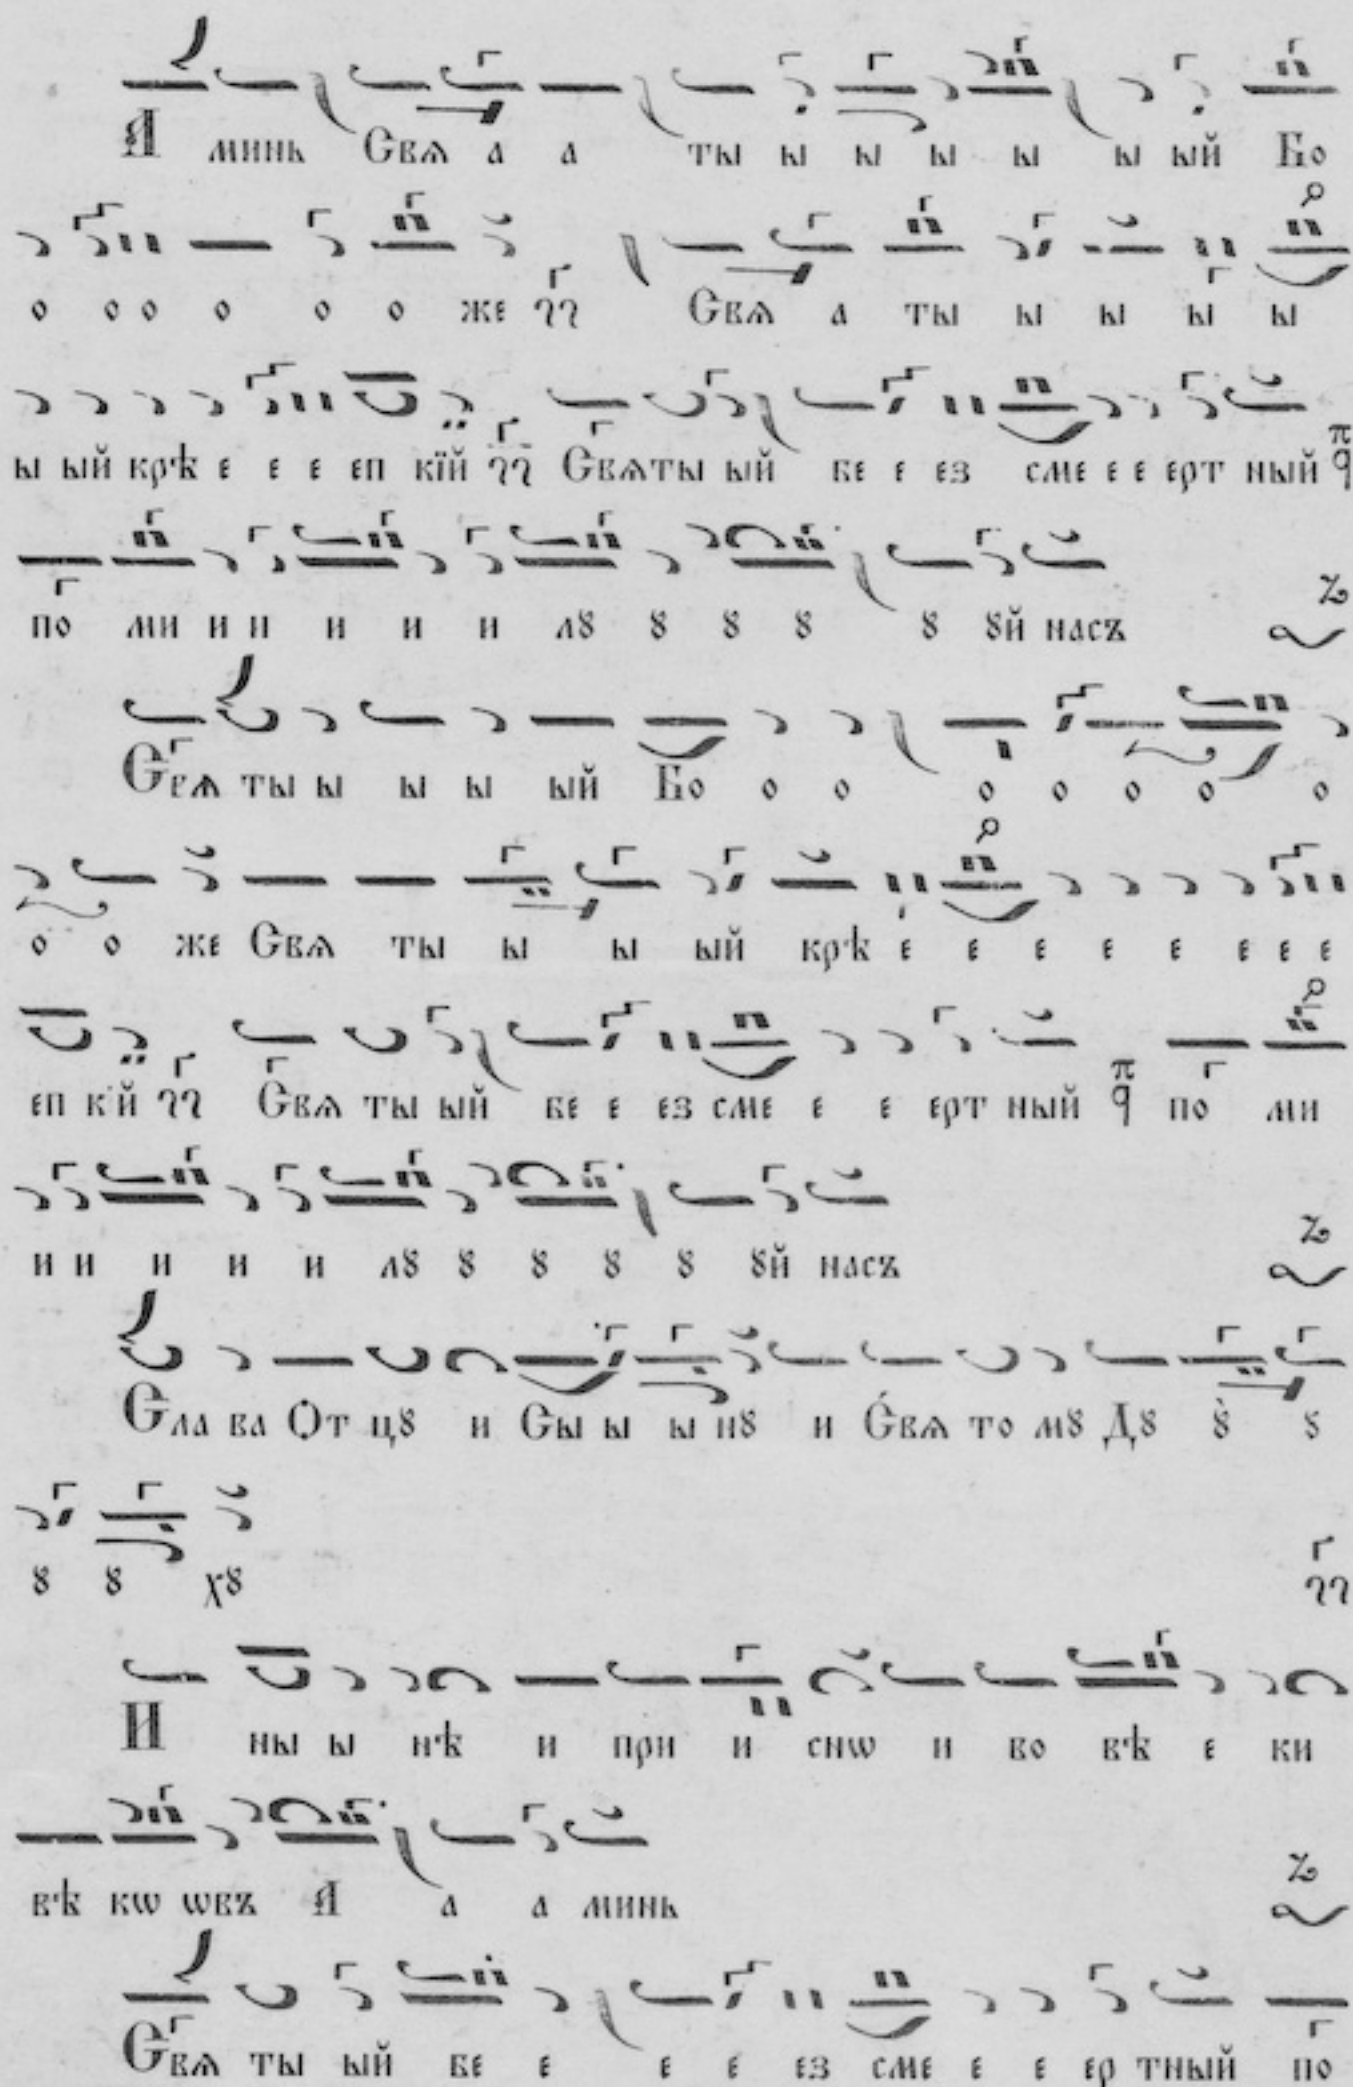 А минь Свѧ а а ты ы ы ы ы ы ый Бо
о о о о о о же Свѧ а ты ы ы ы ы
ы ый крѣ е е е еп кїй Свѧты ый бе е ез сме е е ерт ный π
по ми и и и и и лꙋ ꙋ ꙋ ꙋ ꙋ ꙋй насъ
Свѧ ты ы ы ы ый Бо о о о о о о о
о о же Свѧ ты ы ы ый крѣ е е е е е е е е
еп кїй Свѧ ты ый бе е ез сме е е ерт ный π по ми
и и и и и лꙋ ꙋ ꙋ ꙋ ꙋ ꙋй насъ
Сла ва От цꙋ и Сы ы ы нꙋ и Свѧ то мꙋ Дꙋ ꙋ ꙋ
ꙋ ꙋ хꙋ
И ны ы нѣ и при и снѡ и во вѣ е ки
вѣ кѡ ѡвъ А а а минь
Свѧ ты ый бе е е е ез сме е е ер тный по